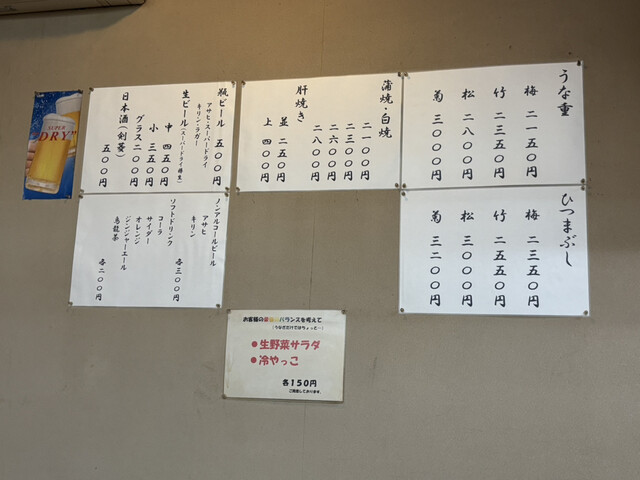 うな重
梅 二一五〇円
竹 二三五〇円
松 二八〇〇円
菊 三〇〇〇円
ひつまぶし
梅 二三五〇円
竹 二五五〇円
松 三〇〇〇円
菊 三二〇〇円
蒲焼・白焼
二一〇〇円
二三〇〇円
二六〇〇円
二八〇〇円
肝焼き
並 二五〇円
上 四〇〇円
瓶ビール 五〇〇円
アサヒ・スーパードライ
キリン・ラガー
生ビール(スーパードライ樽生)
中 四五〇円
小 三五〇円
グラス 二〇〇円
日本酒(剣菱)
五〇〇円
ノンアルコールビール
アサヒ
キリン
各三〇〇円
ソフトドリンク
コーラ
サイダー
オレンジ
ジンジャーエール
烏龍茶
各二〇〇円
SUPER
"DRY"
お客様の栄養のバランスを考えて
(うなぎだけではちょっと…)
●生野菜サラダ
●冷やっこ
各150円
ご用意しております。